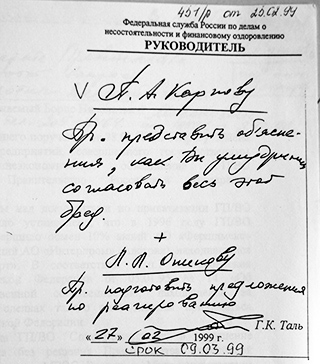 451/р от 25.02.99
Федеральная служба России по делам о
несостоятельности и финансовому оздоровлению
РУКОВОДИТЕЛЬ
V П. А. Карпову
Пр. представить объясне-
ния, как Вы умудрились
согласовать весь этот
бред.
+
Пр. подготовить предложения
по реагированию
Г.К. Таль
«27» 02 1999 г.
срок 09.03.99